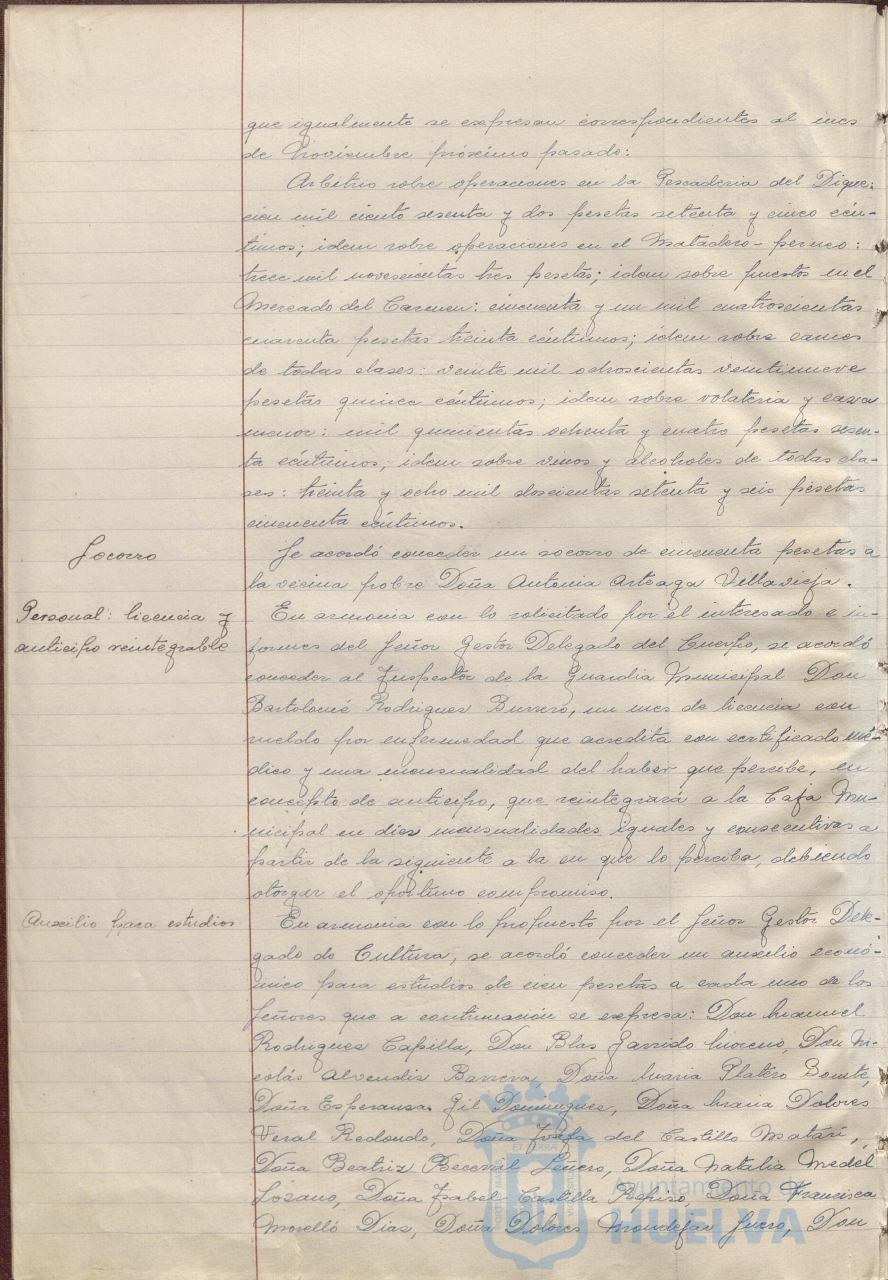 que igualmente se expresan correspondientes al mes
de Noviembre próximo pasado:
Arbitrio sobre operaciones en la Pescaderia del Dique:
cien mil ciento sesenta y dos pesetas setenta y cinco cén-
timos; idem sobre operaciones en el Matadero-permeo:
trece mil novescientas tres pesetas; idem sobre puestos en el
Mercado del Carmen: cincuenta y un mil cuatroscientas
cuarenta pesetas treinta céntimos; idem sobre carnes
de todas clases: veinte mil ochoscientas veintinueve
pesetas quince céntimos; idem sobre volateria y caza
menor: mil quinientas ochenta y cuatro pesetas sesen-
ta céntimos; idem sobre vinos y alcoholes de todas cla-
ses: treinta y ocho mil doscientas setenta y seis pesetas
cincuenta céntimos.
Socorro
Se acordó conceder un socorro de cincuenta pesetas a
la vecina pobre Doña Antonia Arteaga Villavieja.
Personal: licencia y
anticipo reintegrable
En armonia con lo solicitado por el interesado e in-
formes del Señor Gestor Delegado del Cuerpo, se acordó
conceder al Inspector de la Guardia Municipal Don
Bartolomé Rodriguez Burrero, un mes de licencia con
sueldo por enfermedad que acredita con certificado mé-
dico y una mensualidad del haber que percibe, en
concepto de anticipo, que reintegrará a la Caja Mu-
nicipal en diez mensualidades iguales y consecutivas a
partir de la siguiente a la en que lo perciba, debiendo
otorgar el oportuno compromiso.
Auxilio para estudios
En armonia con lo propuesto por el Señor Gestor Dele-
gado de Cultura, se acordó conceder un auxilio econó-
mico para estudios de cien pesetas a cada uno de los
Señores que a continuación se expresa: Don Manuel
Rodriguez Capilla, Don Blas Garrido Moreno, Don Ni-
colás Alvendiz Barrera, Doña Maria Platero Bomte,
Doña Esperanza Gil Dominguez, Doña Maria Dolores
Veral Redondo, Doña Josefa del Castillo Matari,
Doña Beatriz Becerril Leñero, Doña Natalia Medel
Lozano, Doña Isabel Castilla Repiso, Doña Francisca
Morelló Diaz, Doña Dolores Mondejar Juero, Don
Ayuntamiento de
HUELVA